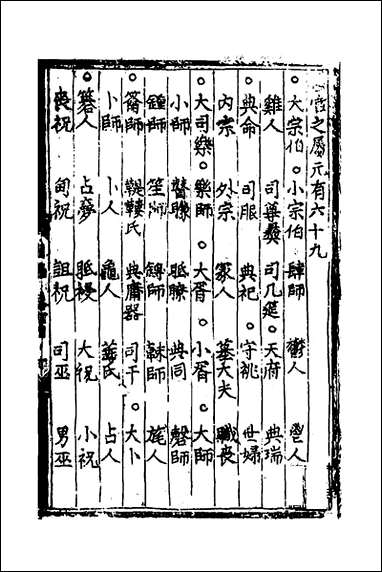 官之屬元有六十九
○大宗伯○小宗伯 肆師 鬱人 鬯人
雞人 司尊彝 司几筵○天府 典瑞
○典命 司服 典祀○守祧 世婦
內宗 外宗 冢人 墓大夫 職喪
○大司樂○樂師○大胥○小胥○大師
小師 瞽矇 眡瞭 典同 磬師
鐘師 笙師 鎛師 韎師 旄人
○籥師 鞮鞻氏 典庸器 司干○大卜
卜師 卜人 龜人 菙氏 占人
○簭人 占夢 眡祲 大祝 小祝
喪祝 甸祝 詛祝 司巫 男巫